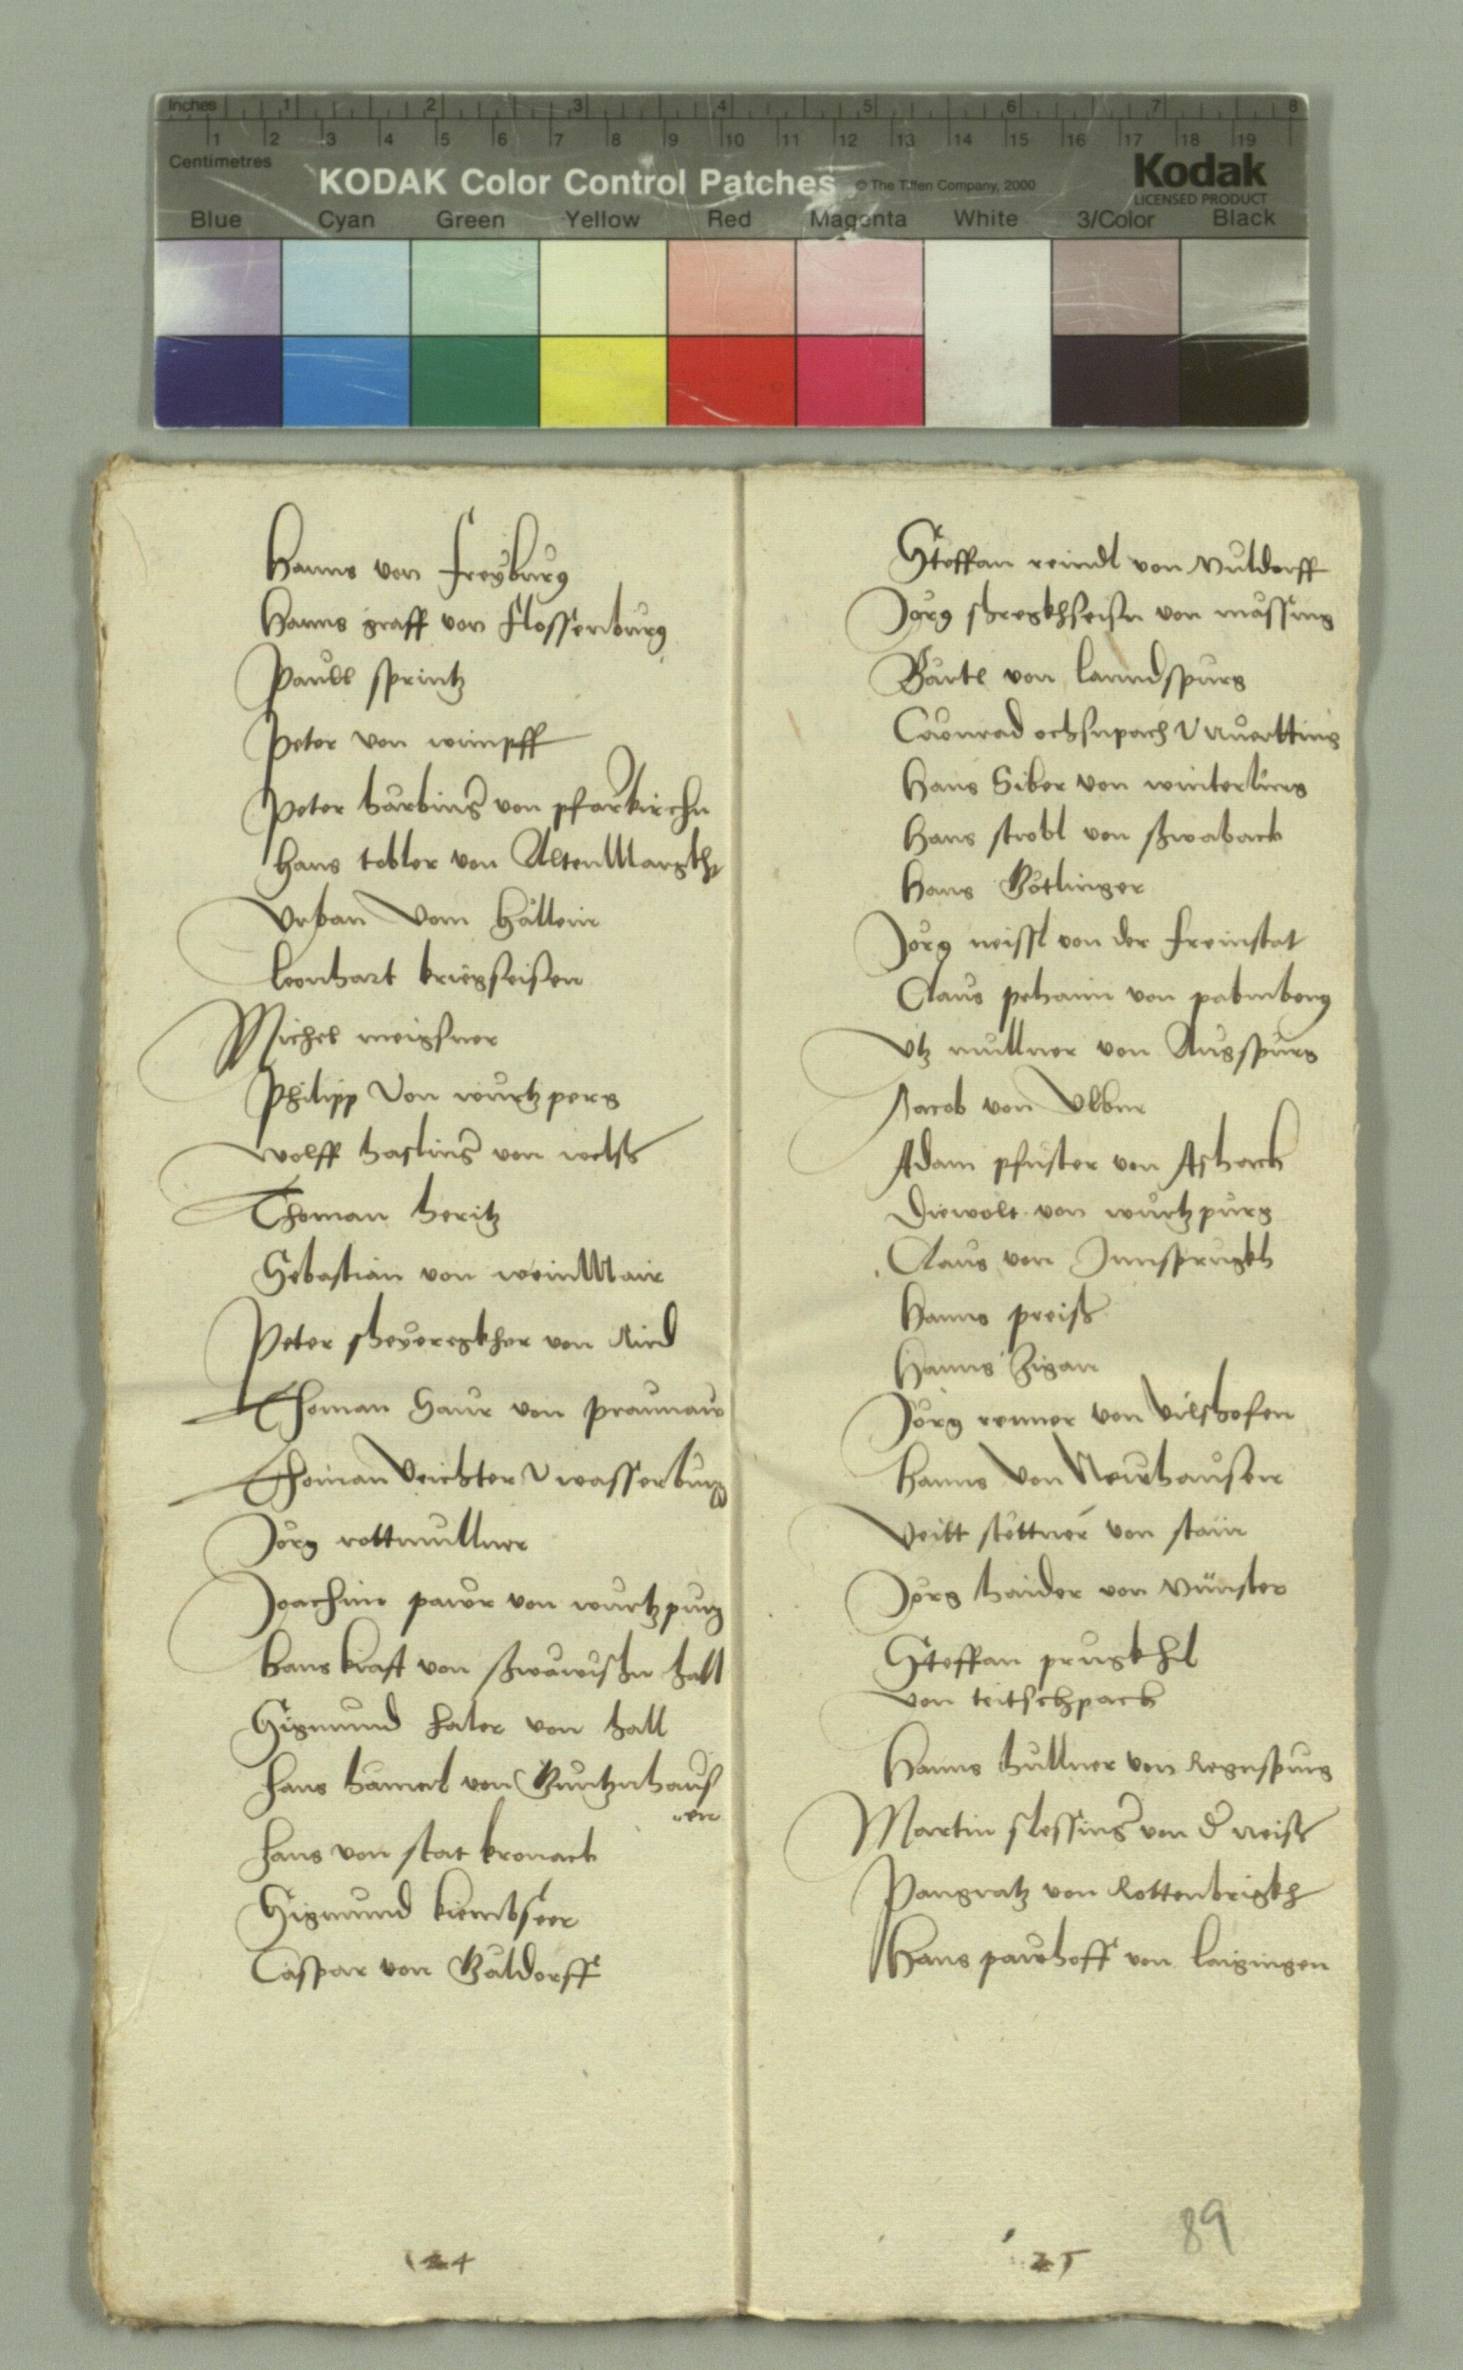 Inches 1 2 3 4 5 6 7 8
1 2 3 4 5 6 7 8 9 10 11 12 13 14 15 16 17 18 19
Centimetres
KODAK Color Control Patches © The Tiffen Company, 2000
Kodak
LICENSED PRODUCT
Blue Cyan Green Yellow Red Magenta White 3/Color Black
Hanns von Freyburg
Hanns graff von Flossenburg
Paull sprintz
Peter von wimpff
Peter harbing von pfarkirchn
Hans tobler von Alten Margkht
Vrban Vom Hällein
Leonhart kriegseisen
Michel meissner
Philipp Von wurtzperg
Wolff haslinger von welss
Thoman heritz
Sebastian von weinMair
Peter von Ried
Thoman Saur von praunaw
Thoman Veichter V wasserburg
Jörg rottmullner
Joachim pawr von wurtzpurg
Hans kraft von hall
Sigmund hater von hall
Hans hämerl von Guntznhaus
en
Hans von stat kronach
Sigmund kiembseer
Caspar von Galdorff
24
Steffan reindl von Muldorff
Jörg von mässing
Bartl von lanndspurg
Connrad ochsnpach V
Hans Siber von winterling
Hans strobl von swabach
Hans Götlinger
Jörg neissl von der Freinstat
Claus pehaim von pabmberg
Vtz mullner von Augspurg
Jacob von Vlbm
Adam pfister von Ashach
Diewolt von wurtzpurg
Claus von Jnnsprugkh
Hanns preiss
Hanns Zigan
Jörg renner von Vilshofen
Hanns Von Newhausen
Veitt stettner von stain
Jörg haider von Münster
Steffan prugkhl
von teitschpach
Hanns hullner von Regnspurg
Martin slessinger von der neiss
Pangratz von Rottenbrigkh
Hans pawhoff von laigingen
25
89